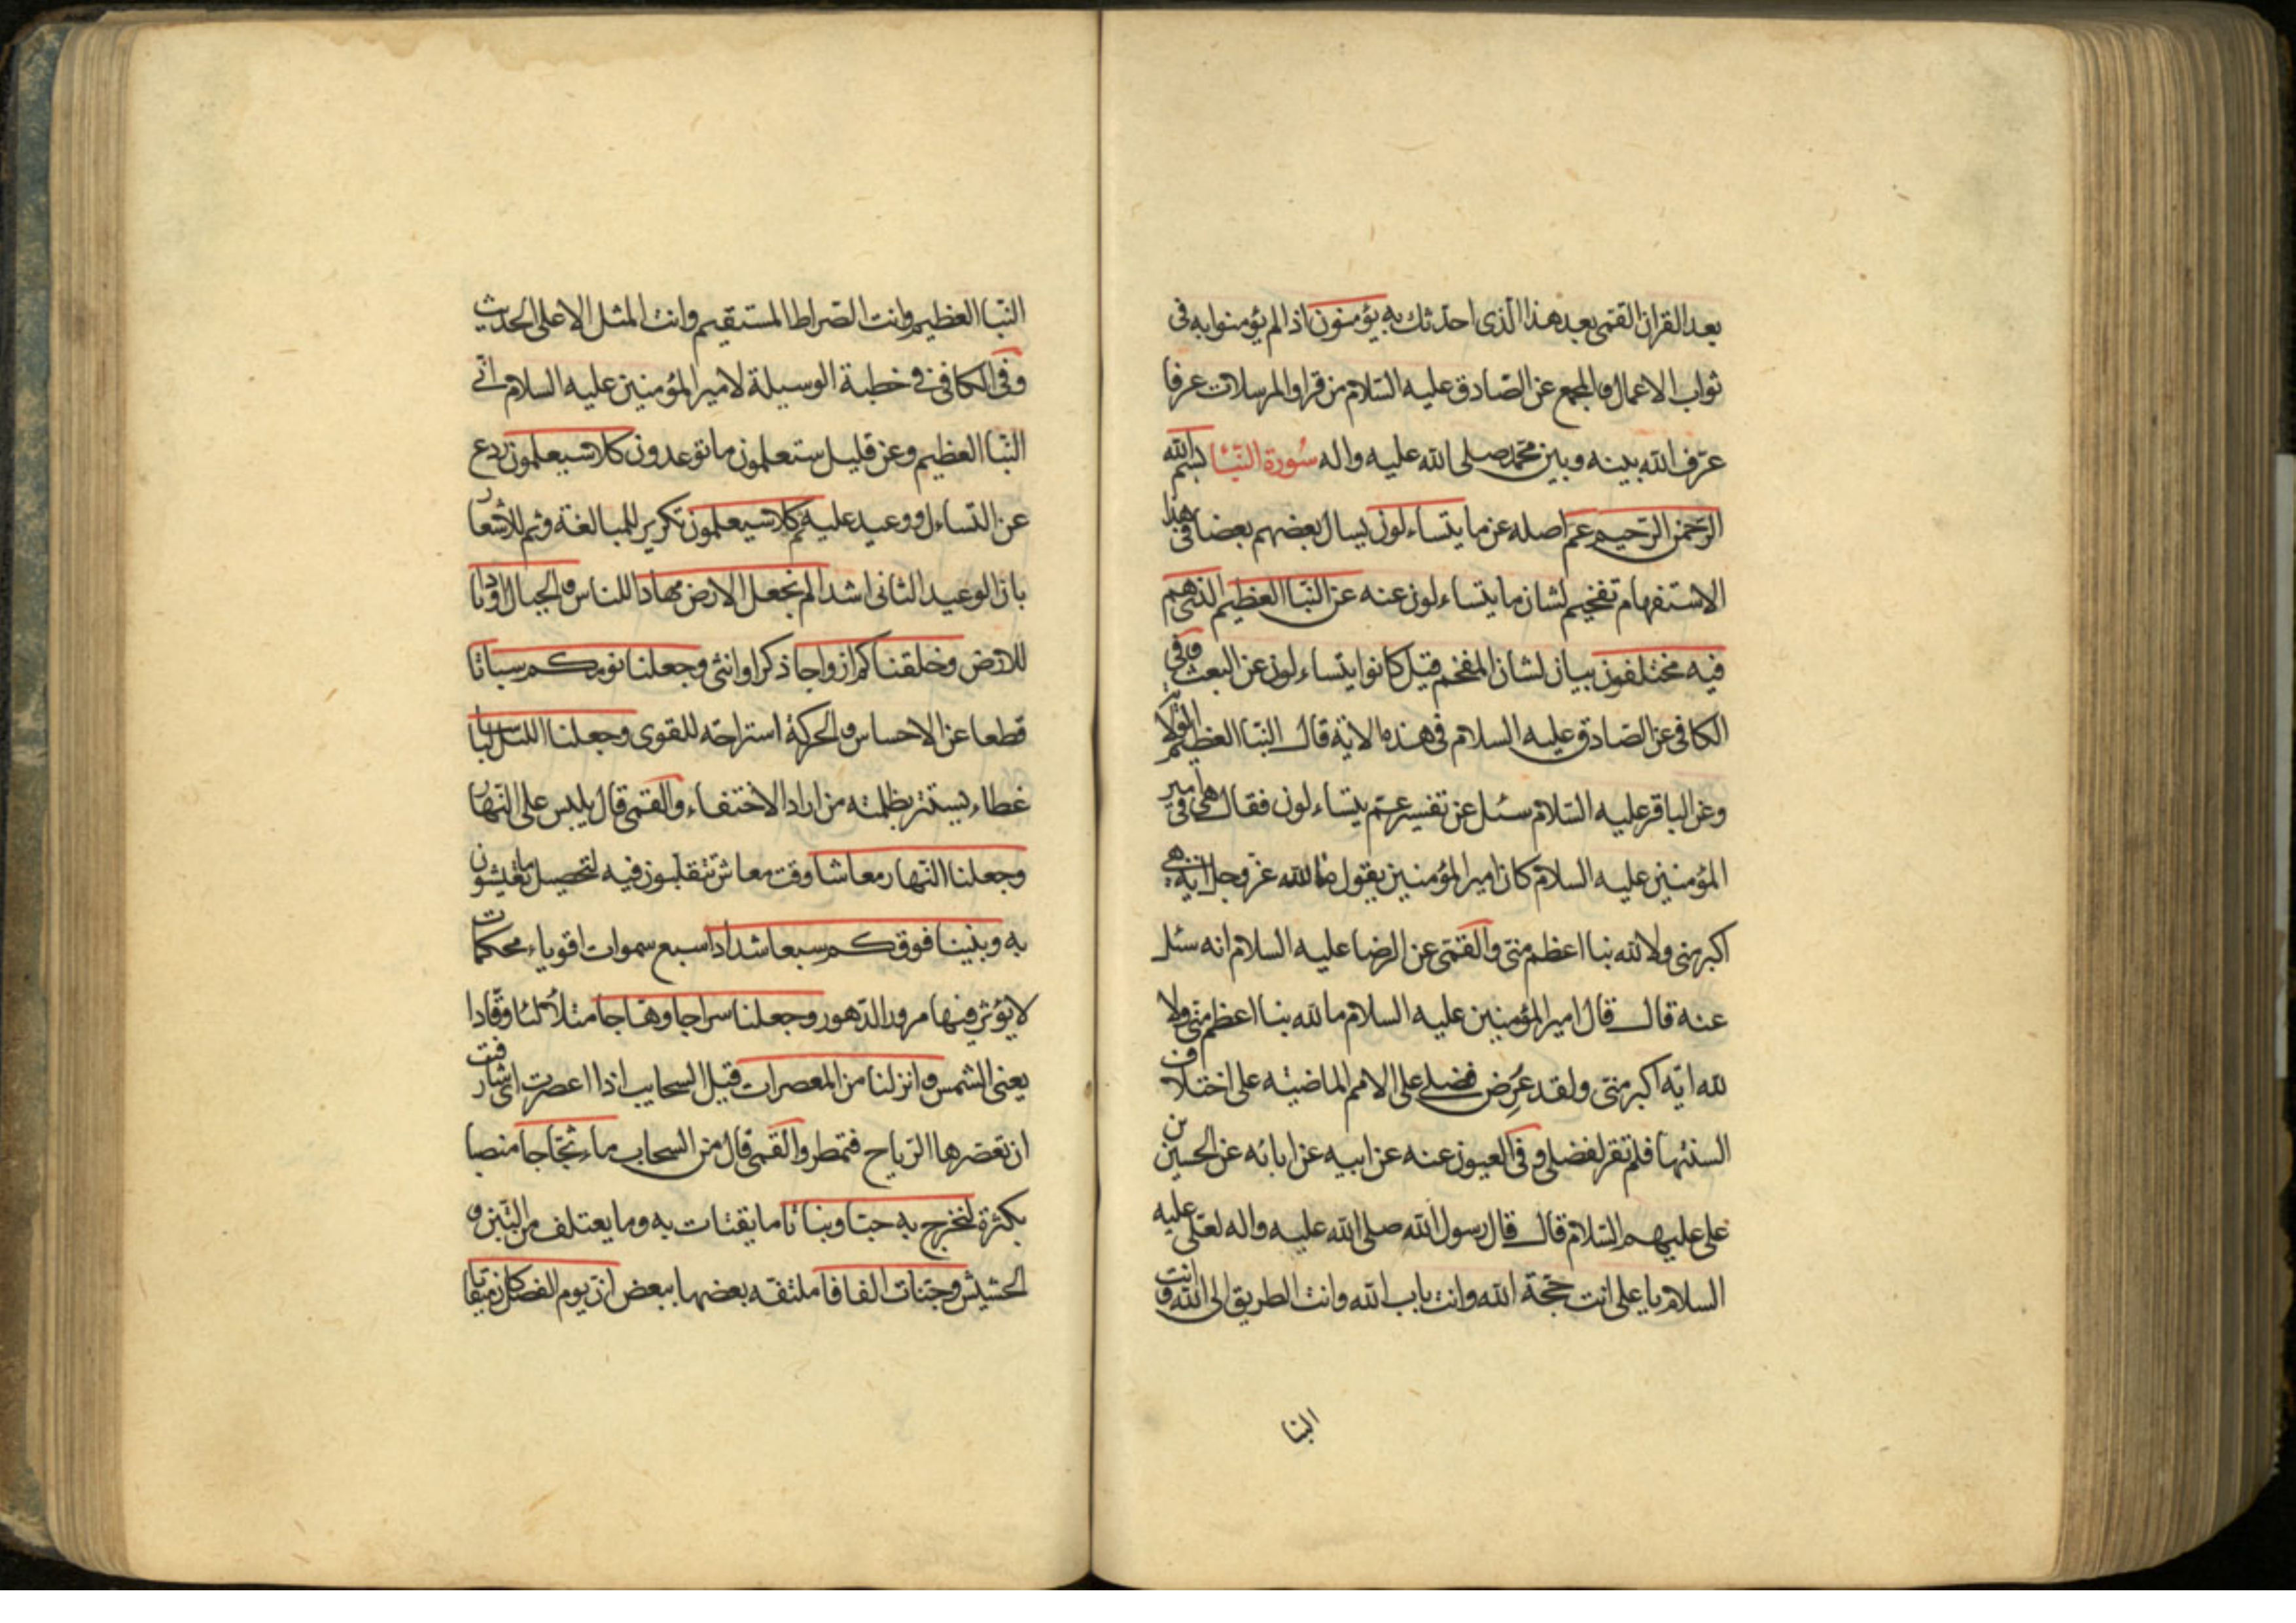 بعد القران القمى بعد هذا الذى احدثك به يؤمنون اذا لم يؤمنوا به فى
ثواب الاعمال والمجمع عن الصادق عليه السلام من قرا والمرسلات عرفا
عرّف الله بينه وبين محمد صلى الله عليه واله سورة النبا بسم الله
الرحمن الرحيم عم اصله عن ما يتساءلون يسال بعضهم بعضا فى هذا
الاستفهام تفخيم لشان ما يتساءلون عنه عن النبا العظيم الذى هم
فيه مختلفون بيان لشان المفخم قيل كانوا يتساءلون عن البعث وفى
الكافى عن الصادق عليه السلام فى هذه الاية قال النبا العظيم الولاية
وعن الباقر عليه السلام سئل عن تفسير عم يتساءلون فقال هى فى امير
المؤمنين عليه السلام كان امير المؤمنين يقول ما لله عز وجل اية هى
اكبر منى ولا لله نبا اعظم منى والقمى عن الرضا عليه السلام انه سئل
عنه قال قال امير المؤمنين عليه السلام ما لله نبا اعظم منى ولا
لله اية اكبر منى ولقد عُرِض فضلى على الامم الماضية على اختلاف
السنتها فلم تقر لفضلى وفى العيون عنه عن ابيه عن ابائه عن الحسين بن
على عليهم السلام قال قال رسول الله صلى الله عليه واله لعلى عليه
السلام يا على انت حجة الله وانت باب الله وانت الطريق الى الله وانت
النبا
النبا العظيم وانت الصراط المستقيم وانت المثل الاعلى الحديث
وفى الكافى فى خطبة الوسيلة لامير المؤمنين عليه السلام انى
النبا العظيم وعن قليل ستعلمون ما توعدون كلا سيعلمون ردع
عن التساءل ووعيد عليه ثم كلا سيعلمون تكرير للمبالغة وثم للاشعار
بان الوعيد الثانى اشد الم نجعل الارض مهادا للناس والجبال اوتادا
للارض وخلقناكم ازواجا ذكرا وانثى وجعلنا نومكم سباتا
قطعا عن الاحساس والحركة استراحة للقوى وجعلنا الليل لباسا
غطاء يستتر بظلمته من اراد الاختفاء والقمى قال يلبس على النهار
وجعلنا النهار معاشا وقت معاش تتقلبون فيه لتحصيل ما تعيشون
به وبنينا فوقكم سبعا شدادا سبع سموات اقوياء محكمات
لا يؤثر فيها مرور الدهور وجعلنا سراجا وهاجا متلألئا وقادا
يعنى الشمس وانزلنا من المعصرات قيل السحايب اذا اعصرت اى شارفت
ان تعصرها الرياح فتمطر والقمى قال من السحاب ماء ثجاجا منصبا
بكثرة لنخرج به حبا ونباتا ما يقتات به وما يعتلف من التبن و
الحشيش وجنات الفافا ملتفة بعضها ببعض ان يوم الفصل كان ميقاتا